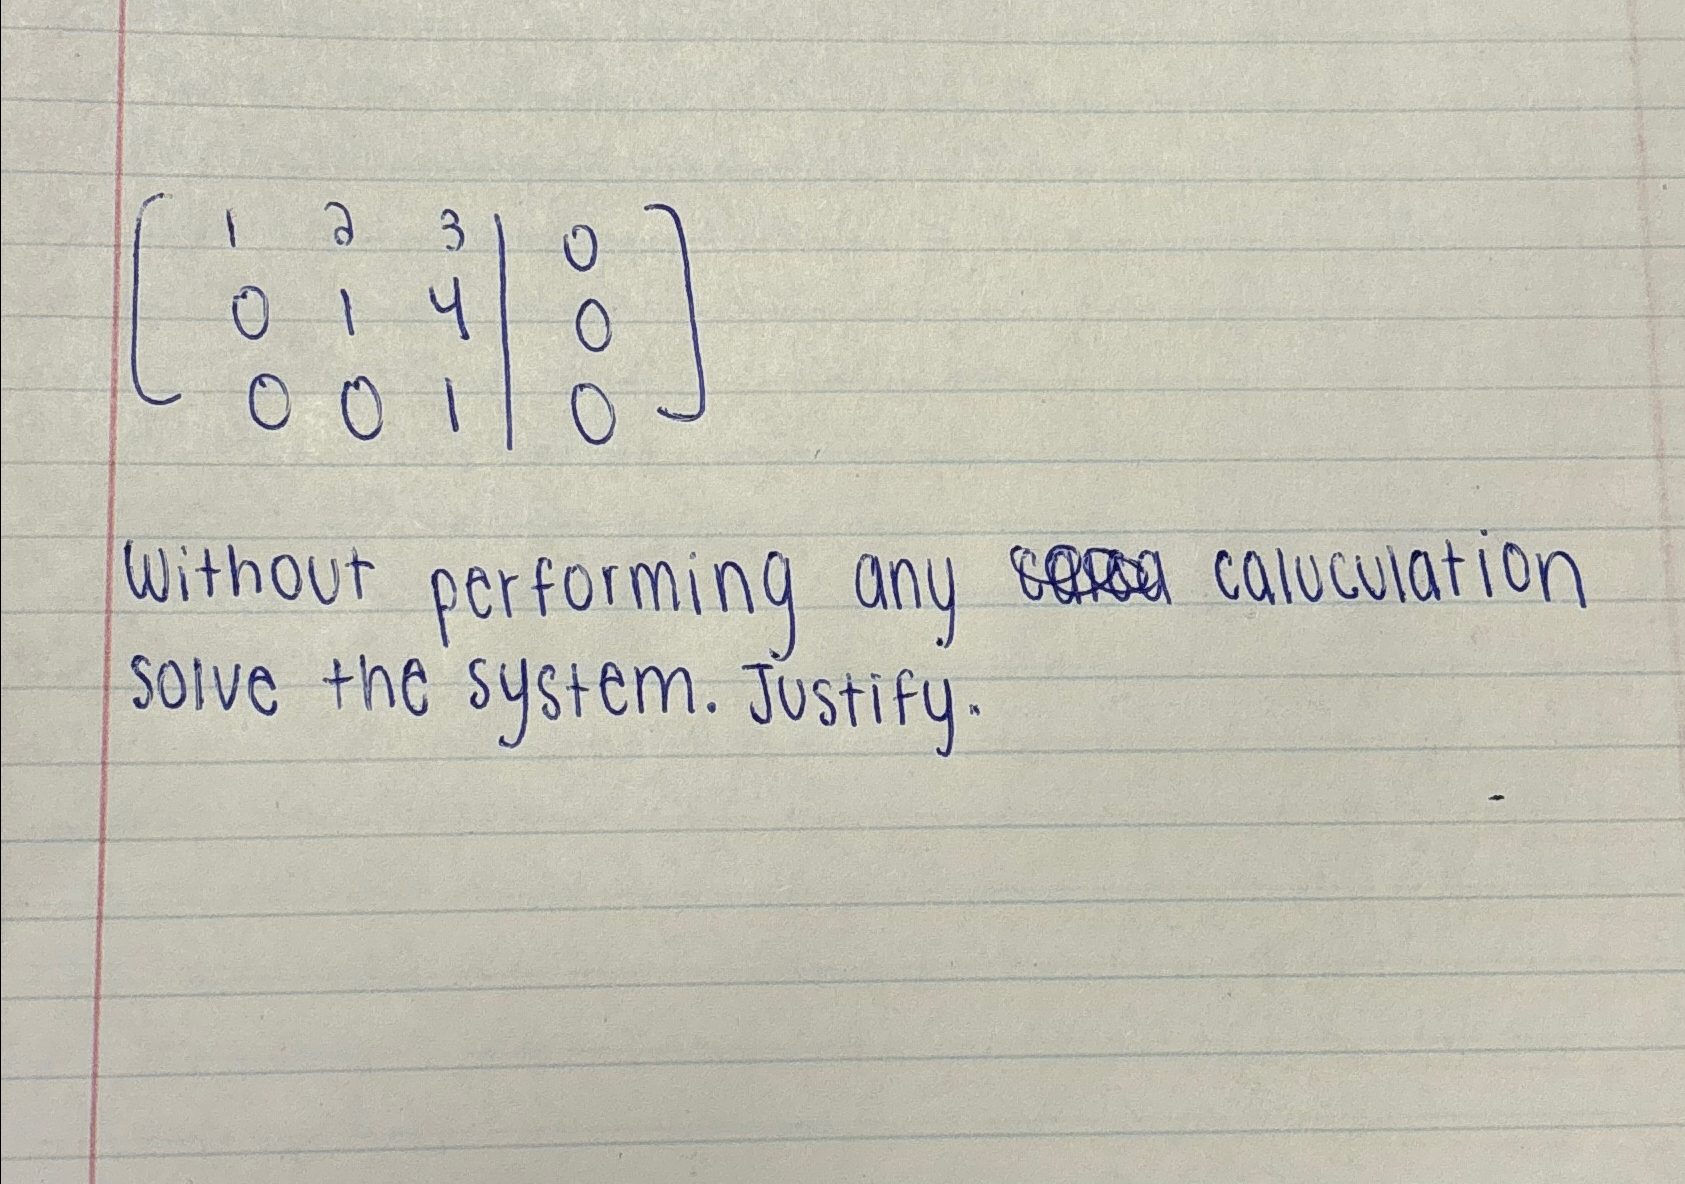 1 2 3 | 0
0 1 4 | 0
0 0 1 | 0
Without performing any caluculation
solve the system. Justify.